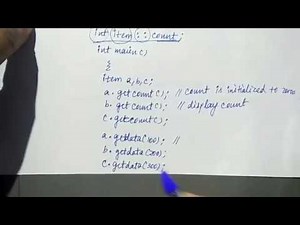 int item :: count;
int main()
{
item a,b,c;
a.getcount(); // count is initialized to zero
b.getcount(); // display count
c.getcount();
a.getdata(100); //
b.getdata(200);
c.getdata(300);